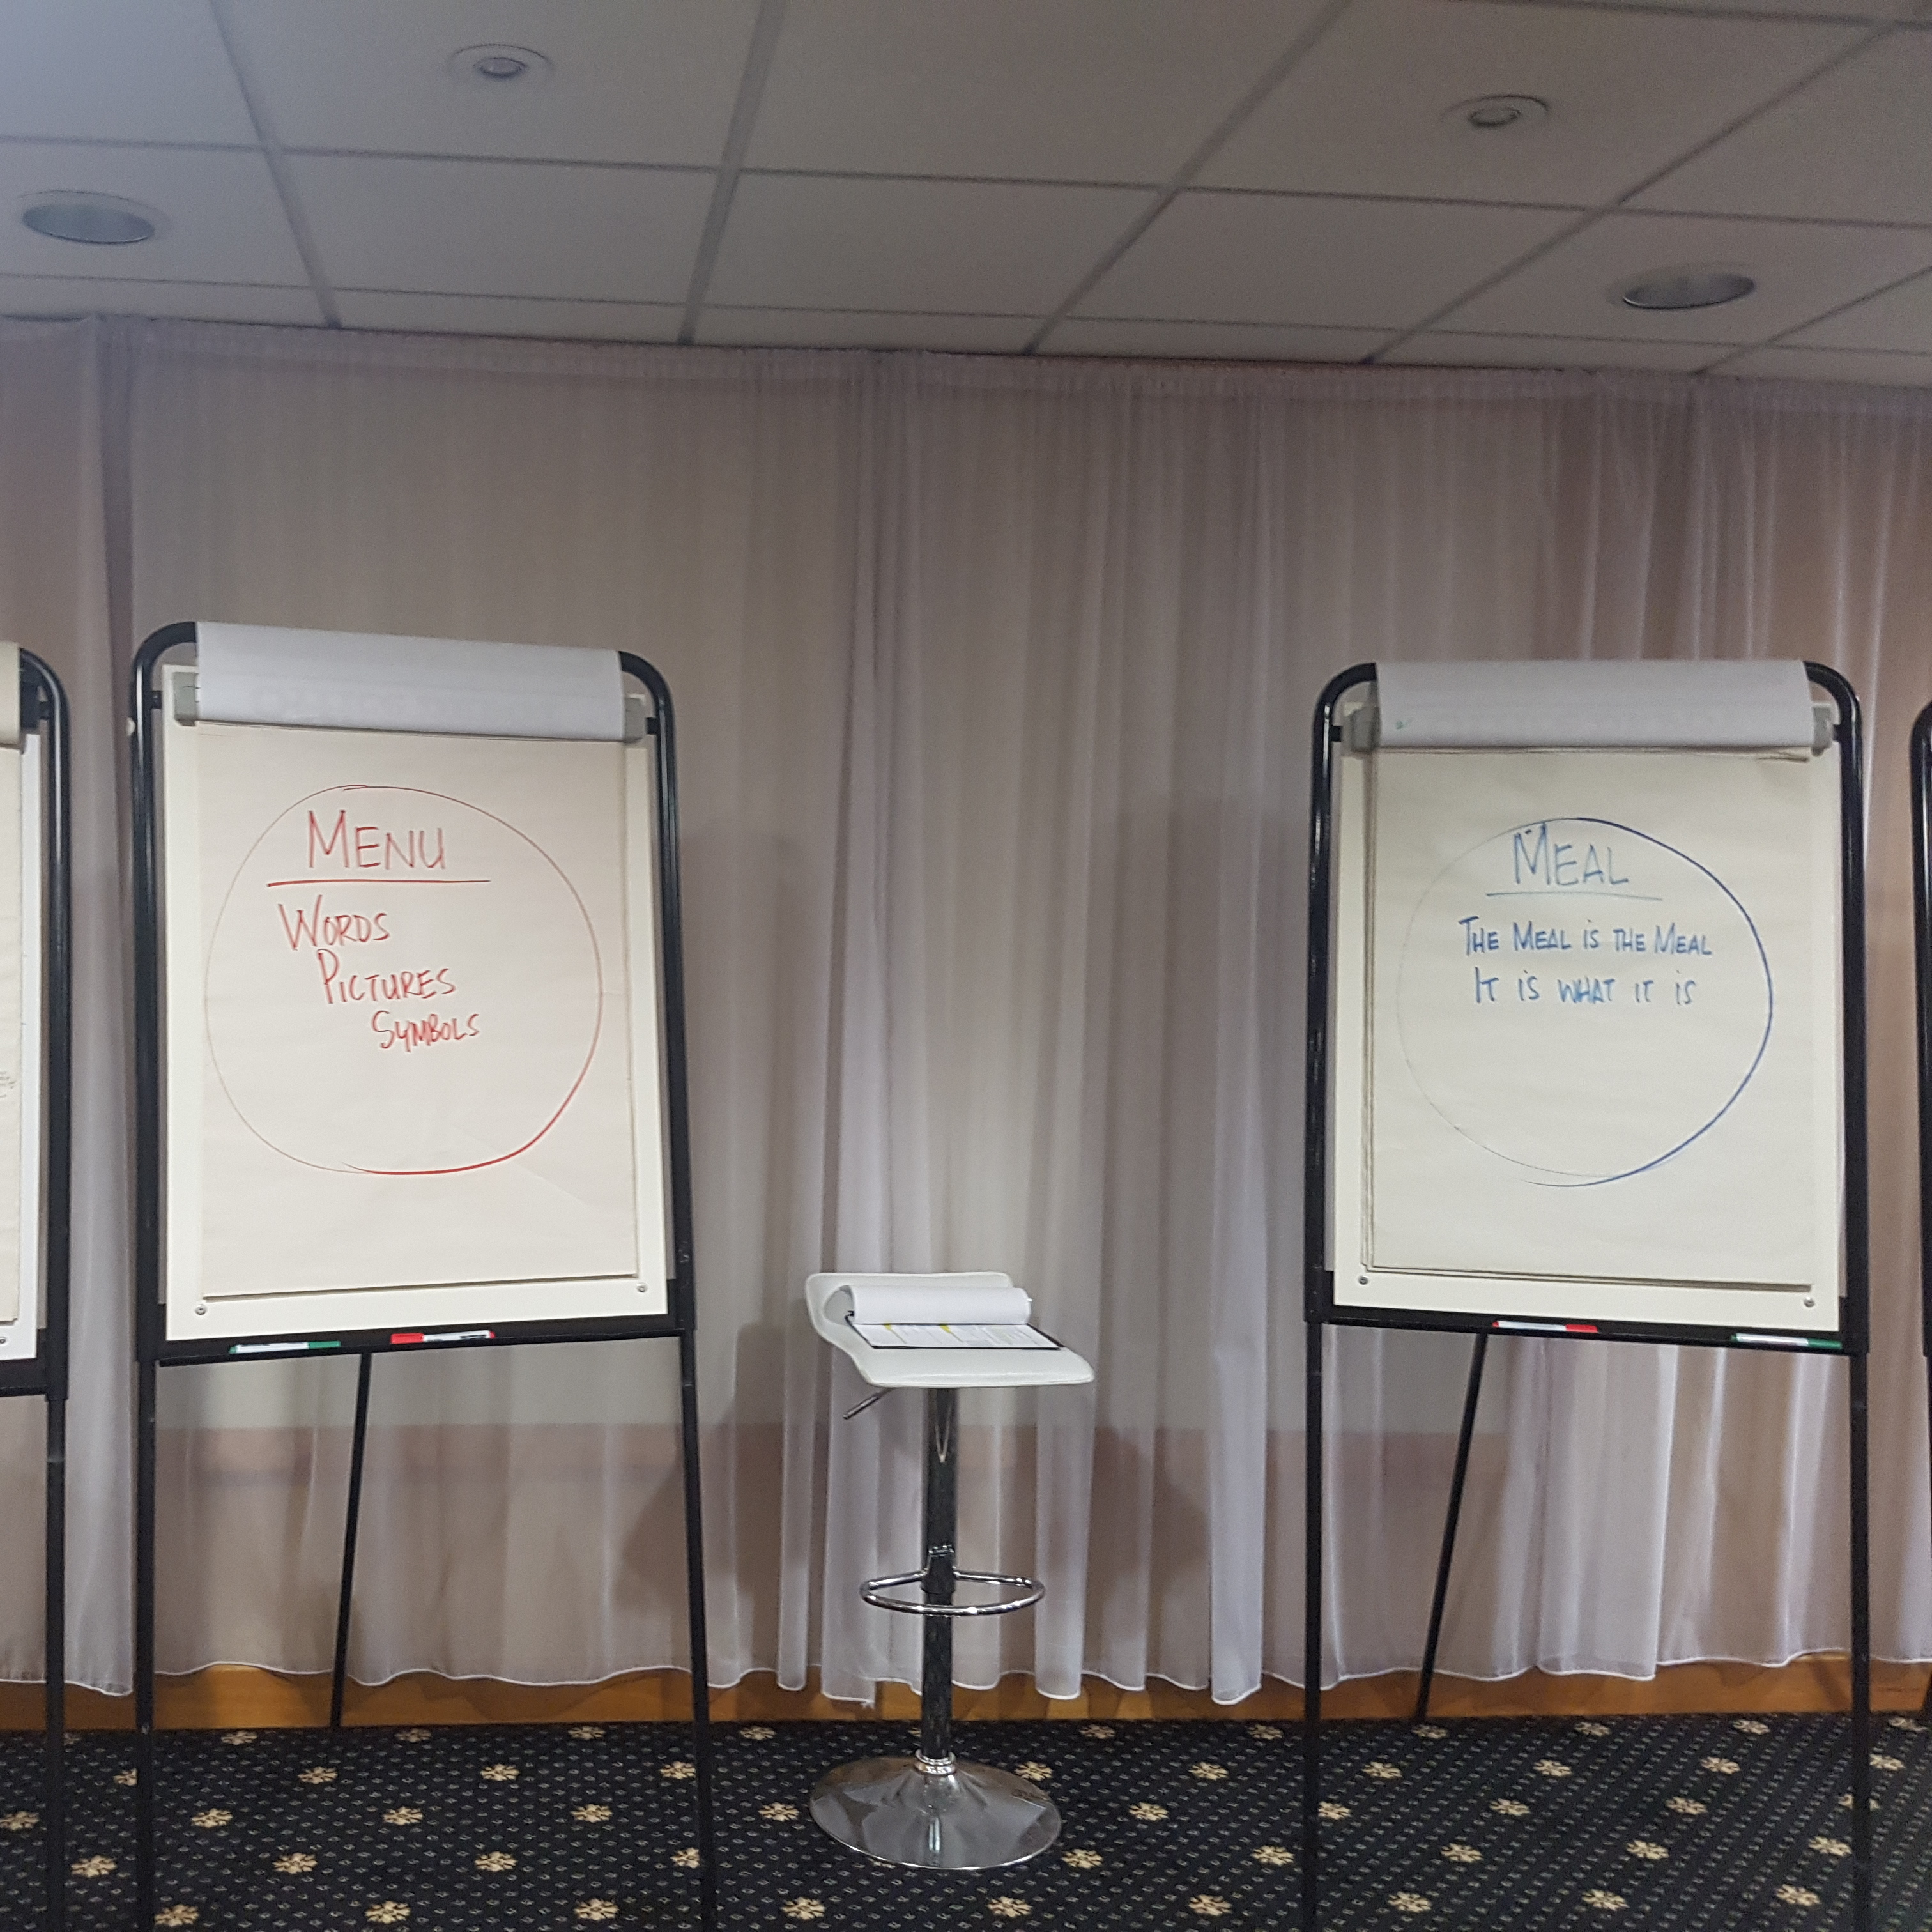 MENU
WORDS
PICTURES
SYMBOLS
MEAL
THE MEAL IS THE MEAL
IT IS WHAT IT IS